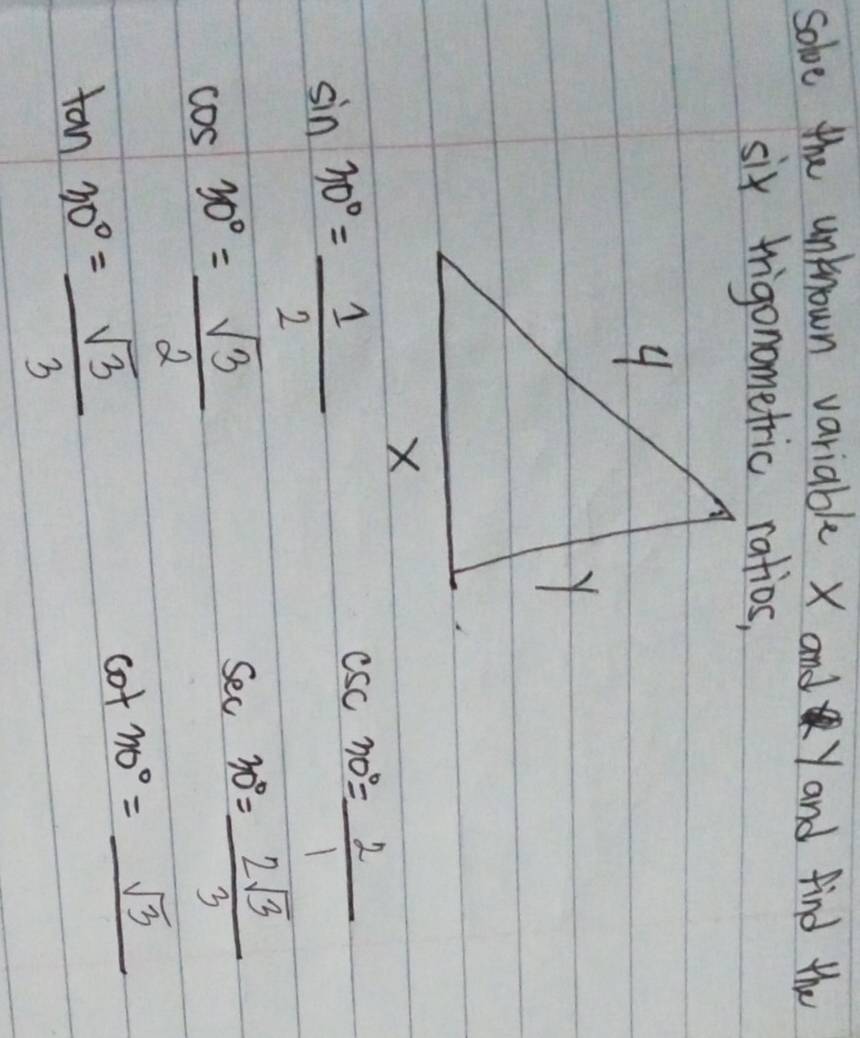 Solve the unknown variable X and Y and find the
six trigonometric ratios,
4
Y
X
sin 30° = 1/2 csc 30° = 2/1
cos 30° = √3/2 sec 30° = 2√3/3
tan 30° = √3/3 cot 30° = √3